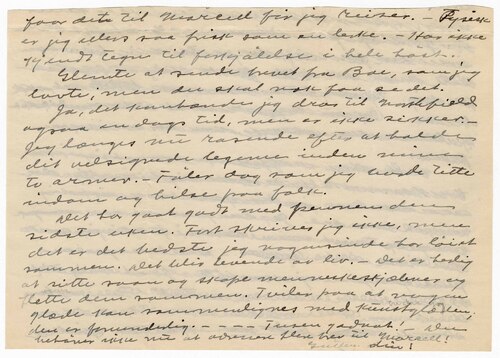 faar dette til Marcell før jeg reiser. — Fysisk
er jeg ellers saa frisk som en laks. — Har ikke
kjendt tegn til forkjølelse i hele høst.
Glemte at sende brevet fra Boe, som jeg
lovte; men du skal nok faa se det.
Ja, det kan hænde jeg drar til Northfield
ogsaa en dags tid, men er ikke sikker. —
Jeg længes nu rasende efter at holde
dit velsignede legeme inden mine
to armer. — Føler dog som jeg burde titte
indom og hilse paa folk.
Det har gaat godt med pennen den
sidste uken. Fort skriver jeg ikke, men
det er det bedste jeg nogensinde har løiet
sammen. Det blir levende av liv. — Det er herlig
at sitte saan og skape menneskeskjæbner og
flette dem sammen. Tviler paa at nogen
glæde kan sammenlignes med kunstglæden;
den er forunderlig. — — — — Tusen godnat! — Du
behøver ikke nu at adressere flere brev til Marcell!
din!